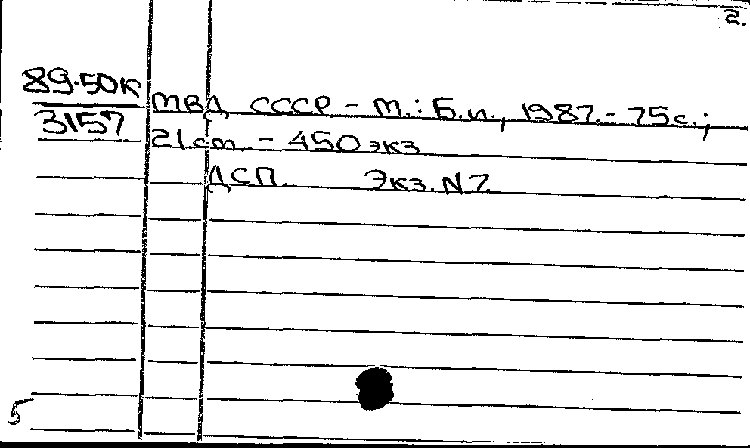 2.
89-50к
3157
МВД СССР - М.: Б.и., 1987. - 75с.;
21см. - 450экз
ДСП. Экз.N7
5